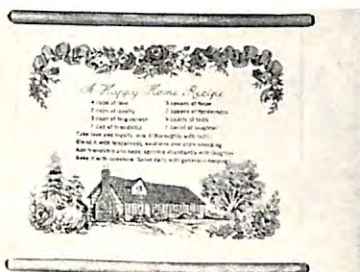 A Happy Home Recipe
4 cups of love
2 cups of loyalty
3 cups of forgiveness
1 cup of friendship
5 spoons of hope
2 spoons of tenderness
4 quarts of faith
1 barrel of laughter
Take love and loyalty, mix it thoroughly with faith.
Blend it with tenderness, kindness and understanding
Add friendship and hope, sprinkle abundantly with laughter
Bake it with sunshine. Serve daily with generous helping